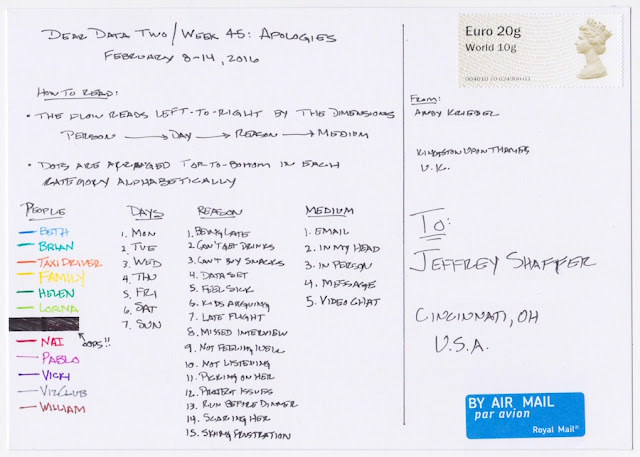 DEAR DATA TWO/WEEK 45: APOLOGIES
FEBRUARY 8-14, 2016
HOW TO READ:
• THE FLOW READS LEFT-TO-RIGHT BY THE DIMENSIONS
PERSON → DAY → REASON → MEDIUM
• DOTS ARE ARRANGED TOP-TO-BOTTOM IN EACH
CATEGORY ALPHABETICALLY
PEOPLE
BETH
BRIAN
TAXI DRIVER
FAMILY
HELEN
LORNA
OOPS!!
NAI
PABLO
VICKI
VIZCLUB
WILLIAM
DAYS
1. MON
2. TUE
3. WED
4. THU
5. FRI
6. SAT
7. SUN
REASON
1. BEING LATE
2. CAN'T GET DRINKS
3. CAN'T BUY SNACKS
4. DATA SET
5. FEEL SICK
6. KIDS ARGUING
7. LATE FLIGHT
8. MISSED INTERVIEW
9. NOT FEELING WELL
10. NOT LISTENING
11. PICKING ON HER
12. PROJECT ISSUES
13. RUN BEFORE DINNER
14. SCARING HER
15. SKIING FRUSTRATION
MEDIUM
1. EMAIL
2. IN MY HEAD
3. IN PERSON
4. MESSAGE
5. VIDEO CHAT
Euro 20g
World 10g
FROM:
ANDY KRIEBEL
KINGSTON UPON THAMES
U.K.
TO:
JEFFREY SHAFFER
CINCINNATI, OH
U.S.A.
BY AIR MAIL
par avion
Royal Mail®